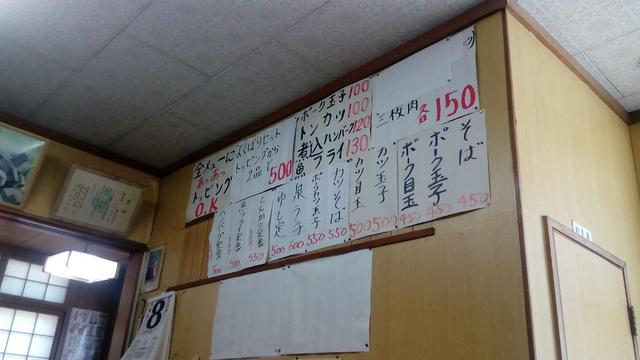 全メニューに
トッピング
O.K
よくばりセット
トッピングなら
2品で
500
ポーク玉子100
トンカツ100
煮込ハンバーグ120
魚フライ130
三枚肉
各150
そば 450
ポーク玉子 450
ポーク目玉 450
カツ玉子 500
カツ目玉 500
カツそば 550
ポークカツ玉子 550
600
ゆし定 500
とんかつ定食 550
500
8